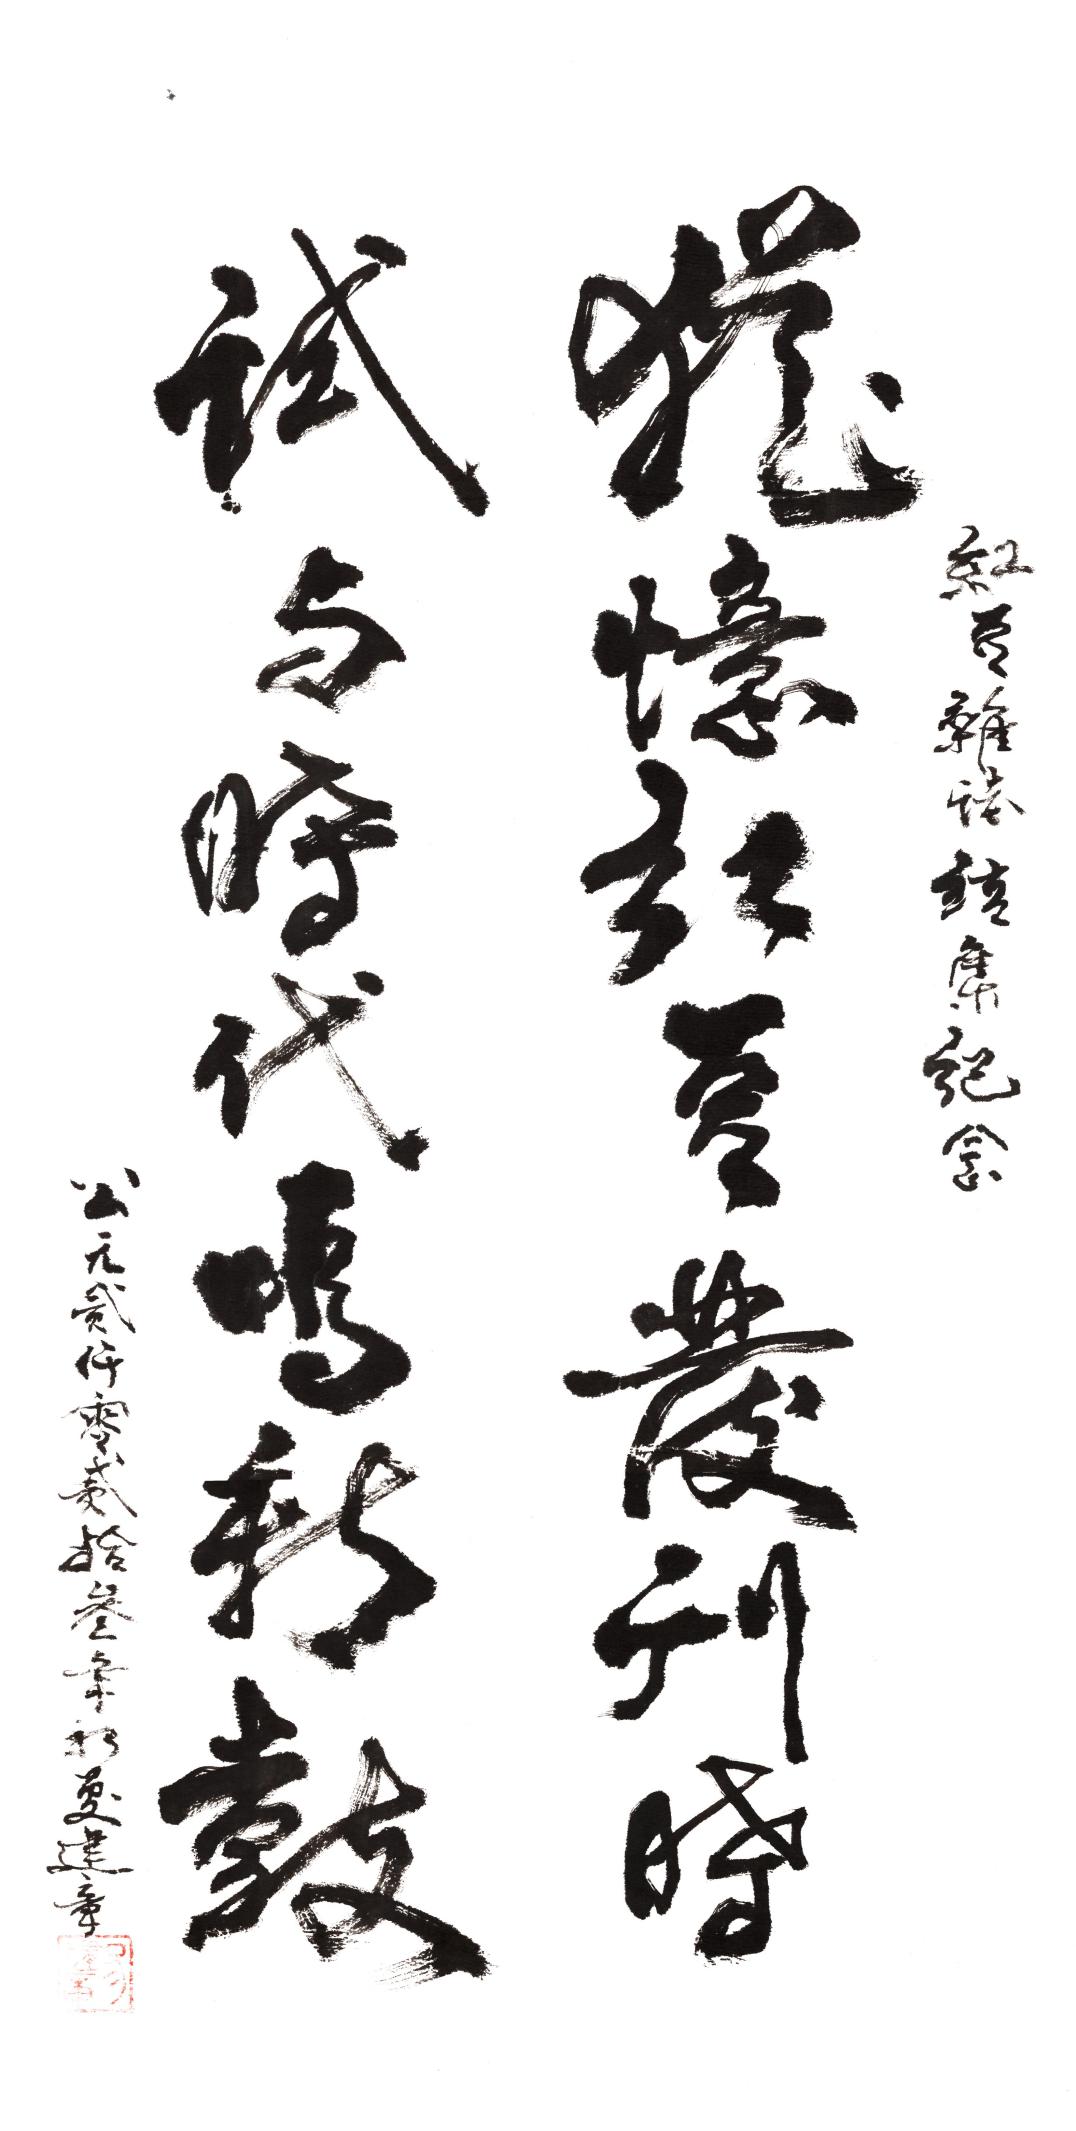 紅豆雜誌結集紀念
猶憶紅豆發刊時
試与時代鳴新鼓
公元貳仟零貳拾叁年初夏建章